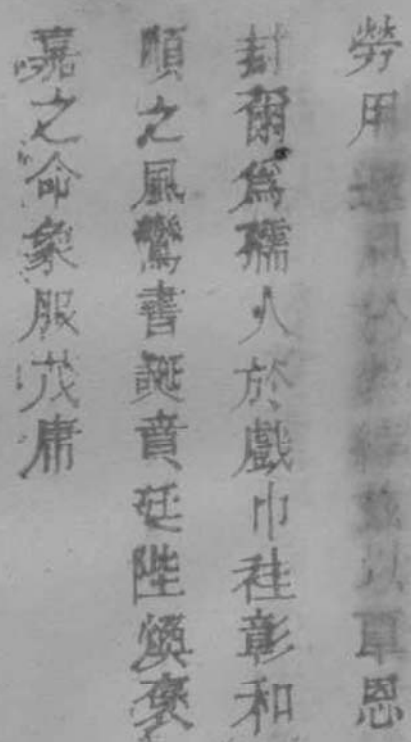 勞用於茲以覃恩
封爾爲孺人於戲巾袿彰和
順之風鸞書誕賁廷陛煥褒
嘉之命象服茂庸